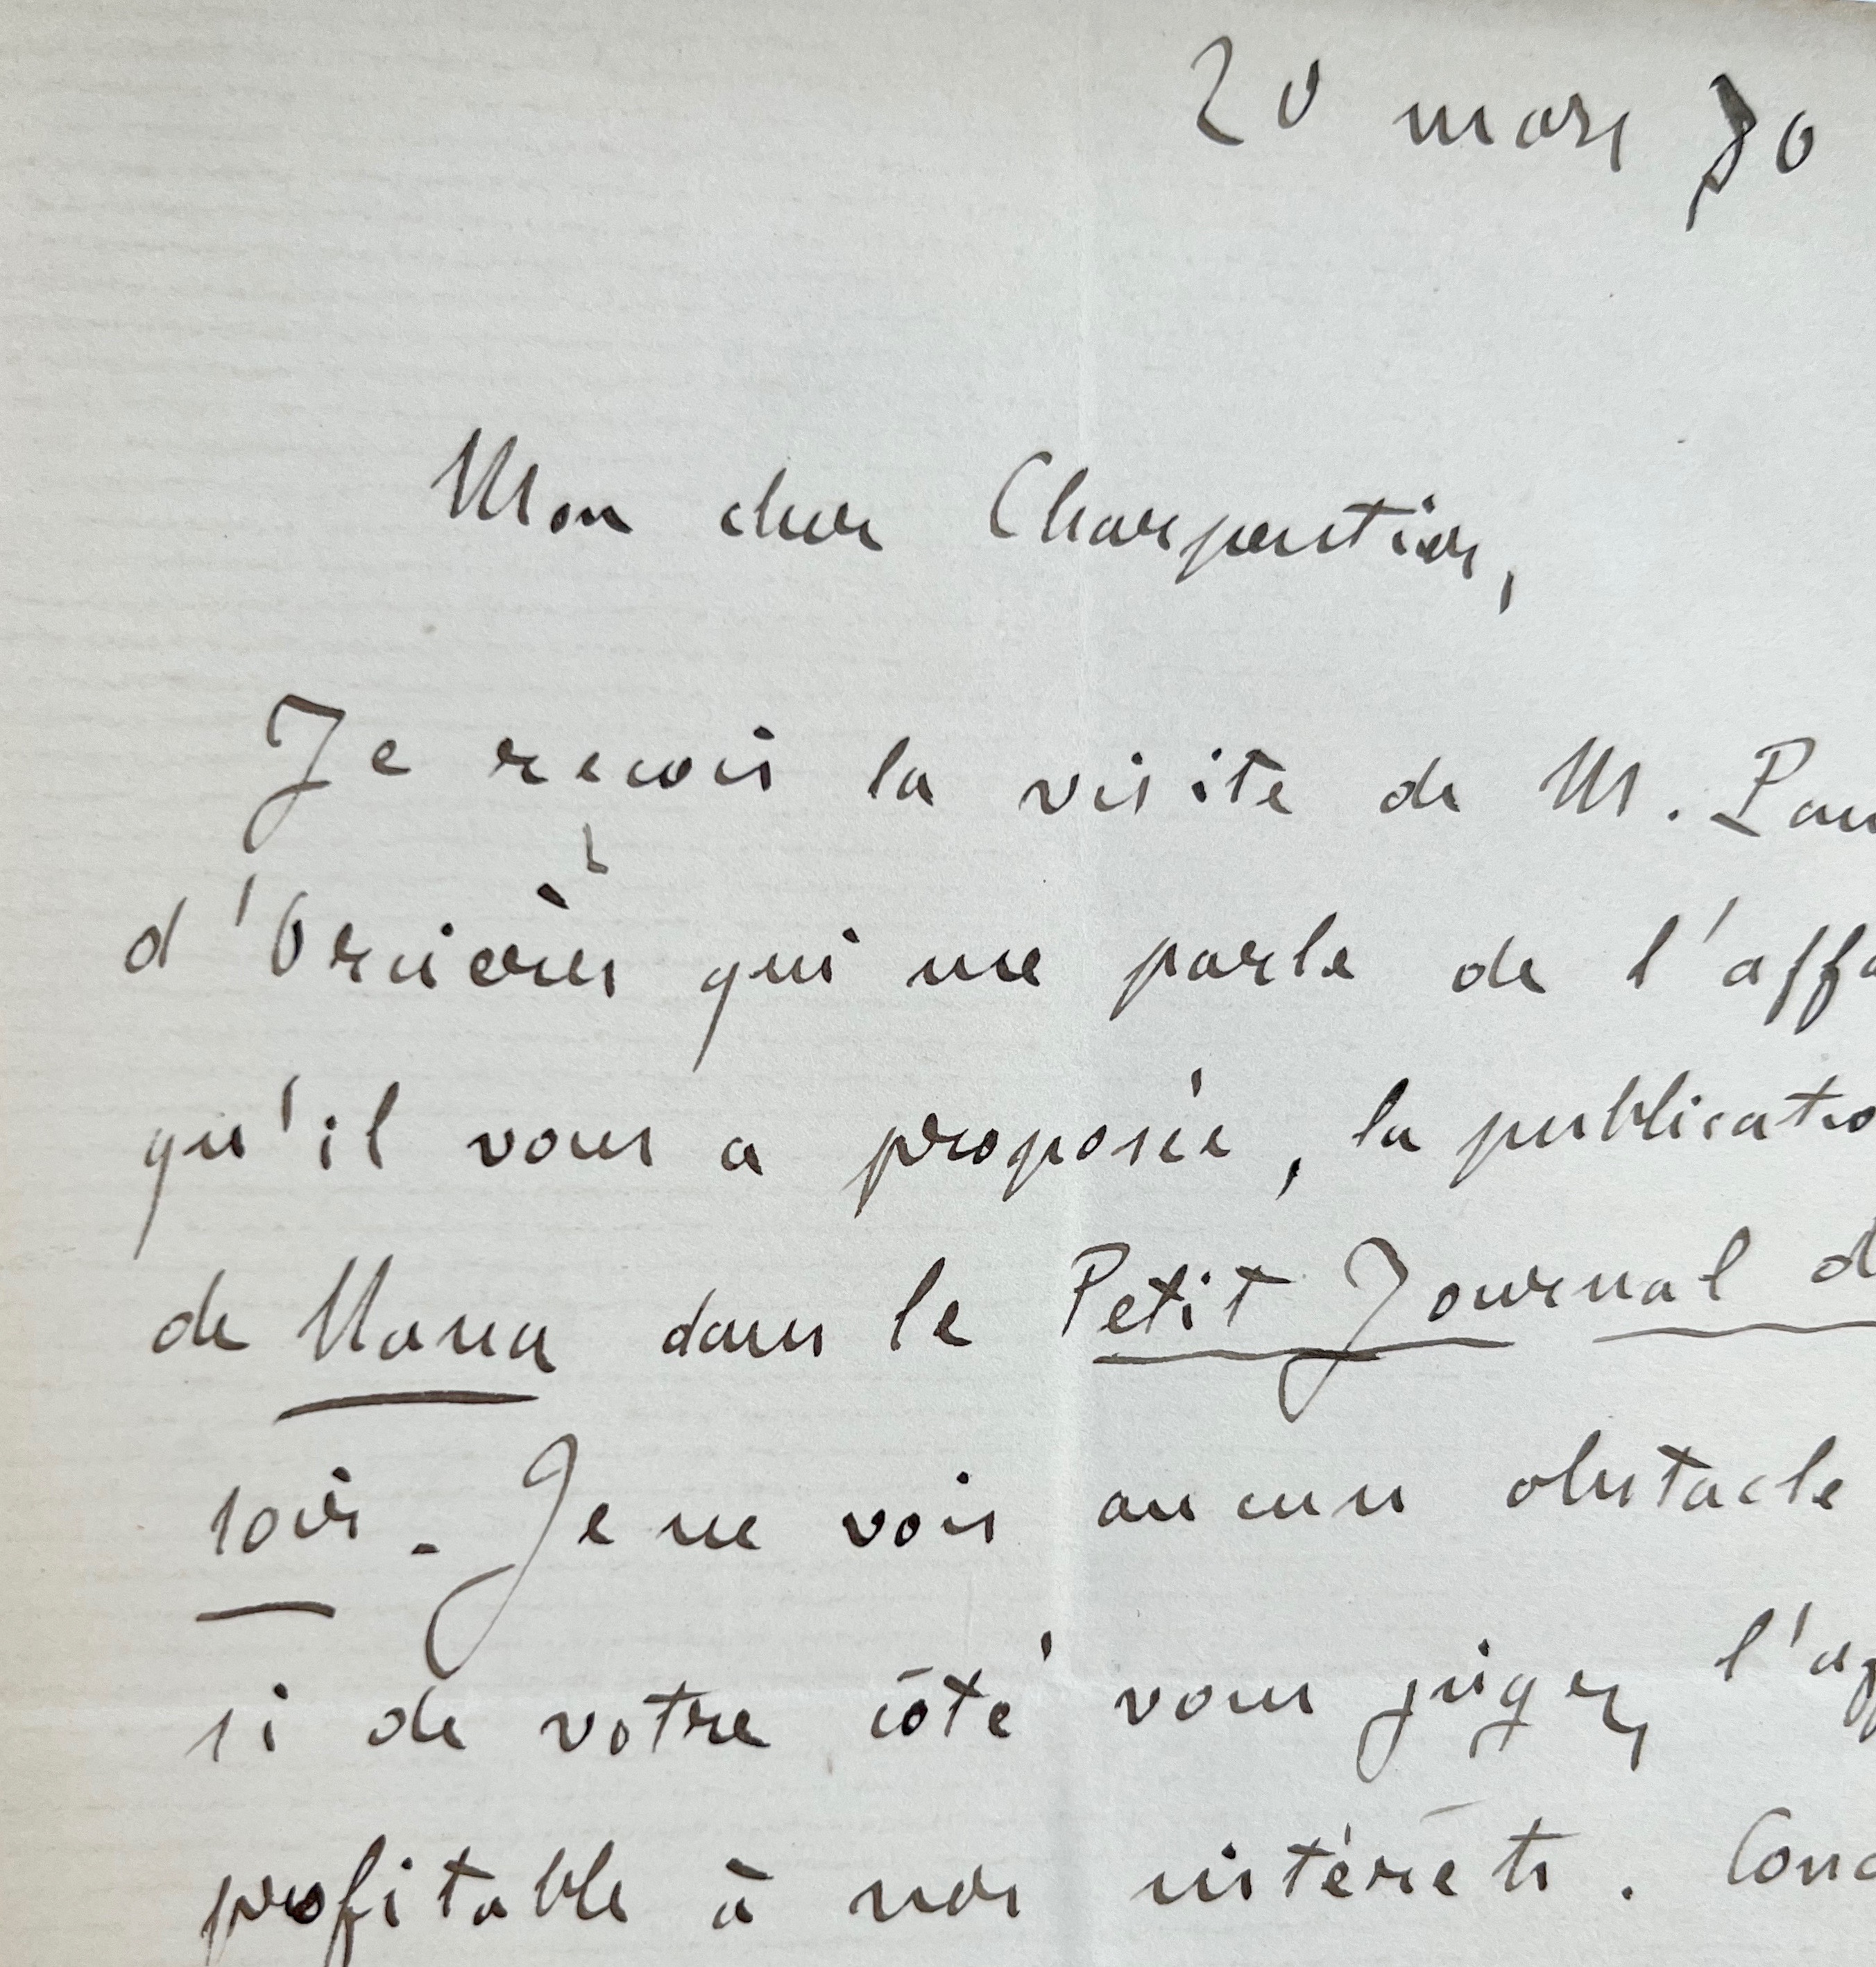 20 mars 80
Mon cher Charpentier,
Je reçois la visite de M.
d'Orcières qui me parle de l'affa
qu'il vous a proposée, la publicatio
de Nana dans le Petit Journal d
soir. Je ne vois aucun obstacle
si de votre côté vous jugez l'ap
profitable à nos intérêts. Conc